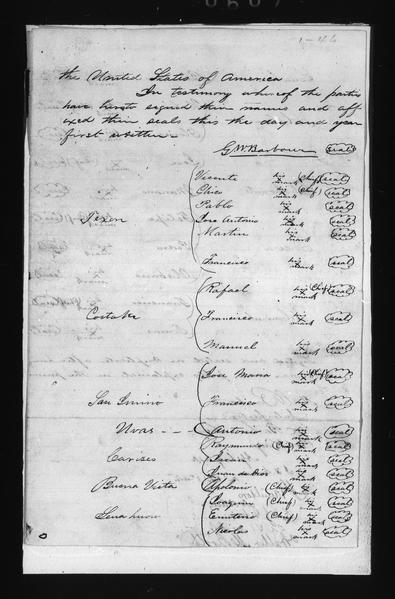 the United States of America
In testimony whereof the parties
have hereto signed their names and aff
ixed their seals this the day and year
first written.
G.W. Barbour (seal)
Vicente his X mark (Chief) (seal)
Chico his X mark (Chief) (seal)
Pablo his X mark (seal)
Texon Jose Antonio his X mark (seal)
Martin his X mark (seal)
Francisco his X mark (seal)
Rafael his X mark (Chief) (seal)
Francisco his X mark (seal)
Manuel his X mark (seal)
Jose Maria his X mark (Chief) (seal)
San Francisco his X mark (seal)
Uvas Antonio his X mark (seal)
Raymundo (Chief) his X mark (seal)
Carises his X mark (seal)
Juan de Dios his X mark (seal)
Buena Vista Apolonio (Chief) his X mark (seal)
Joaquin (Chief) his X mark (seal)
Sena huow Emiterio (Chief) his X mark (seal)
Nicolas his X mark (seal)